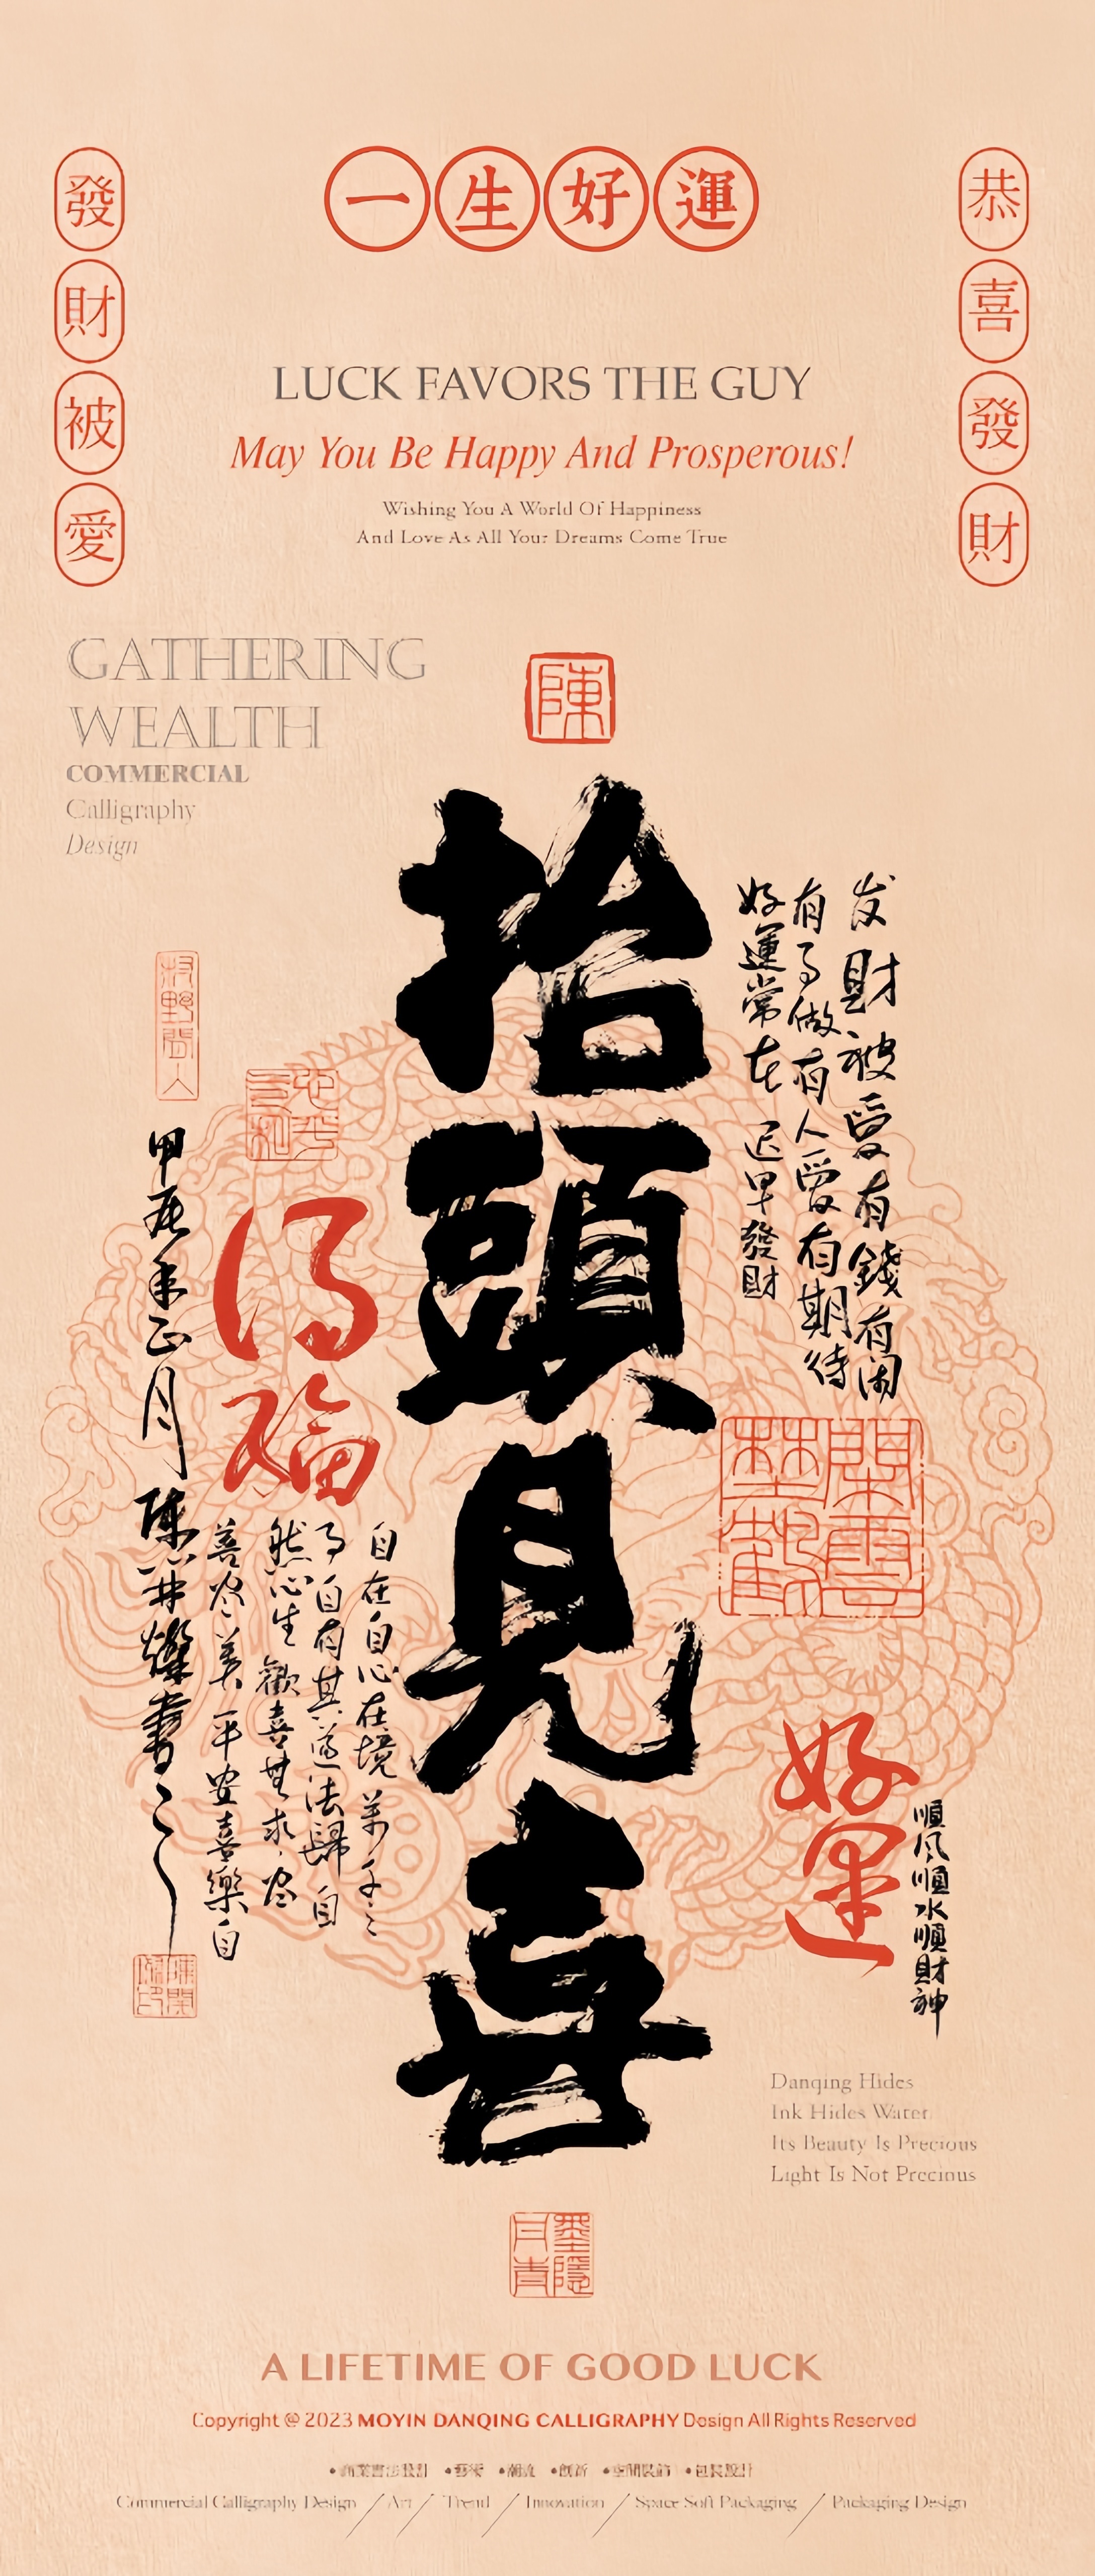 一生好運
發財被愛
恭喜發財
LUCK FAVORS THE GUY
May You Be Happy And Prosperous!
Wishing You A World Of Happiness
And Love As All Your Dreams Come True
GATHERING
WEALTH
COMMERCIAL
Calligraphy
Design
陳
抬頭見喜
发財被愛有錢有闲
有了做有人愛有期待
好運常在迟早發財
得福
甲辰年正月
自在自心在境
了自有其道法歸自
然心生歡喜無求尽
善尽美平安喜樂自
好運
順风順水順財神
Danqing Hides
Ink Hides Water
Its Beauty Is Precious
Light Is Not Precious
墨隱丹青
A LIFETIME OF GOOD LUCK
Copyright @ 2023 MOYIN DANQING CALLIGRAPHY Design All Rights Reserved
•商業書法設計 •藝術 •潮流 •創新 •空間裝飾 •包裝設計
Commercial Calligraphy Design / Art / Trend / Innovation / Space Soft Packaging / Packaging Design